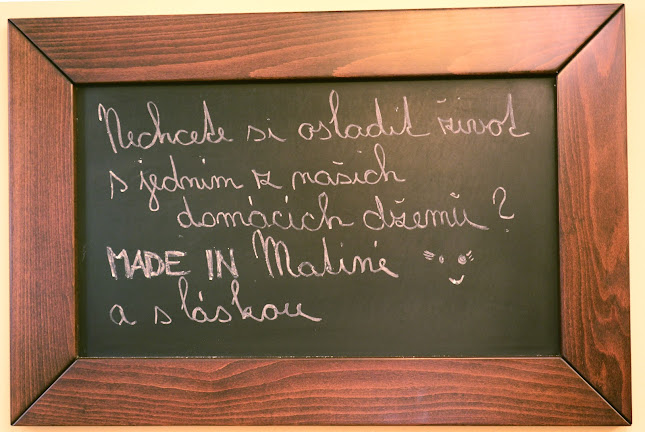 Nechcete si osladit život
s jedním z našich
domácích džemů?
MADE IN Matiné
a s láskou